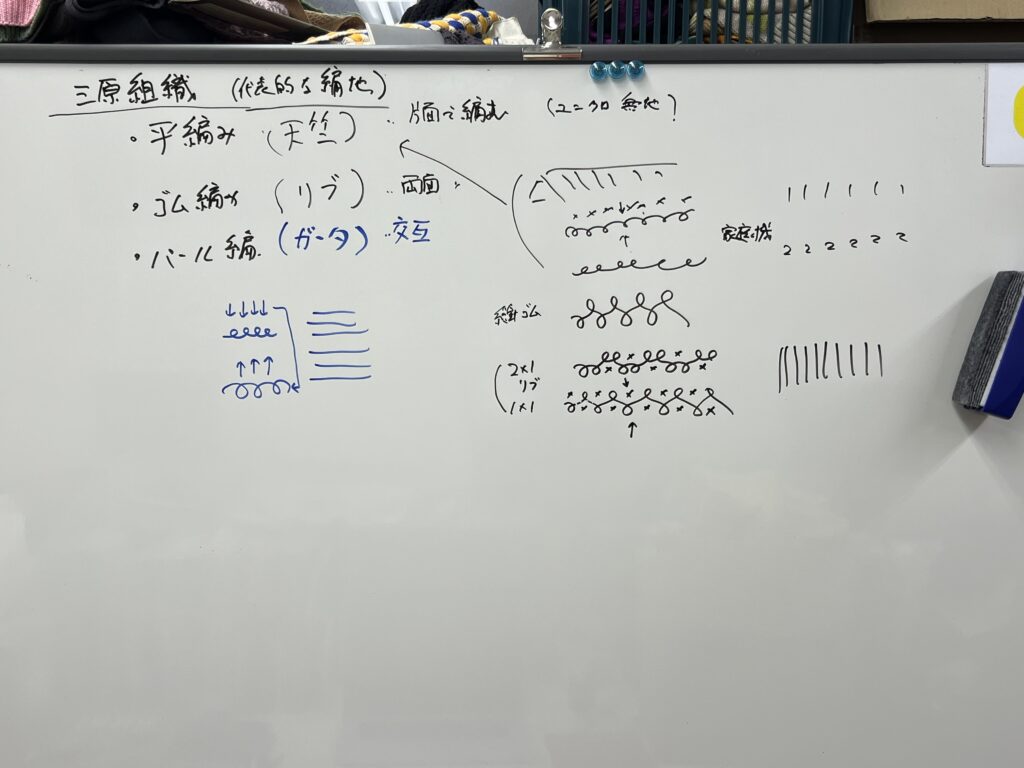 三原組織 (代表的な編地)
・平編み (天竺) ‥片面で編む (ユニクロ 無地)
・ゴム編み (リブ) ‥両面
・パール編 (ガータ) ‥交互
家庭機
2 2 2 2 2 2
総針ゴム
2×1
リブ
1×1